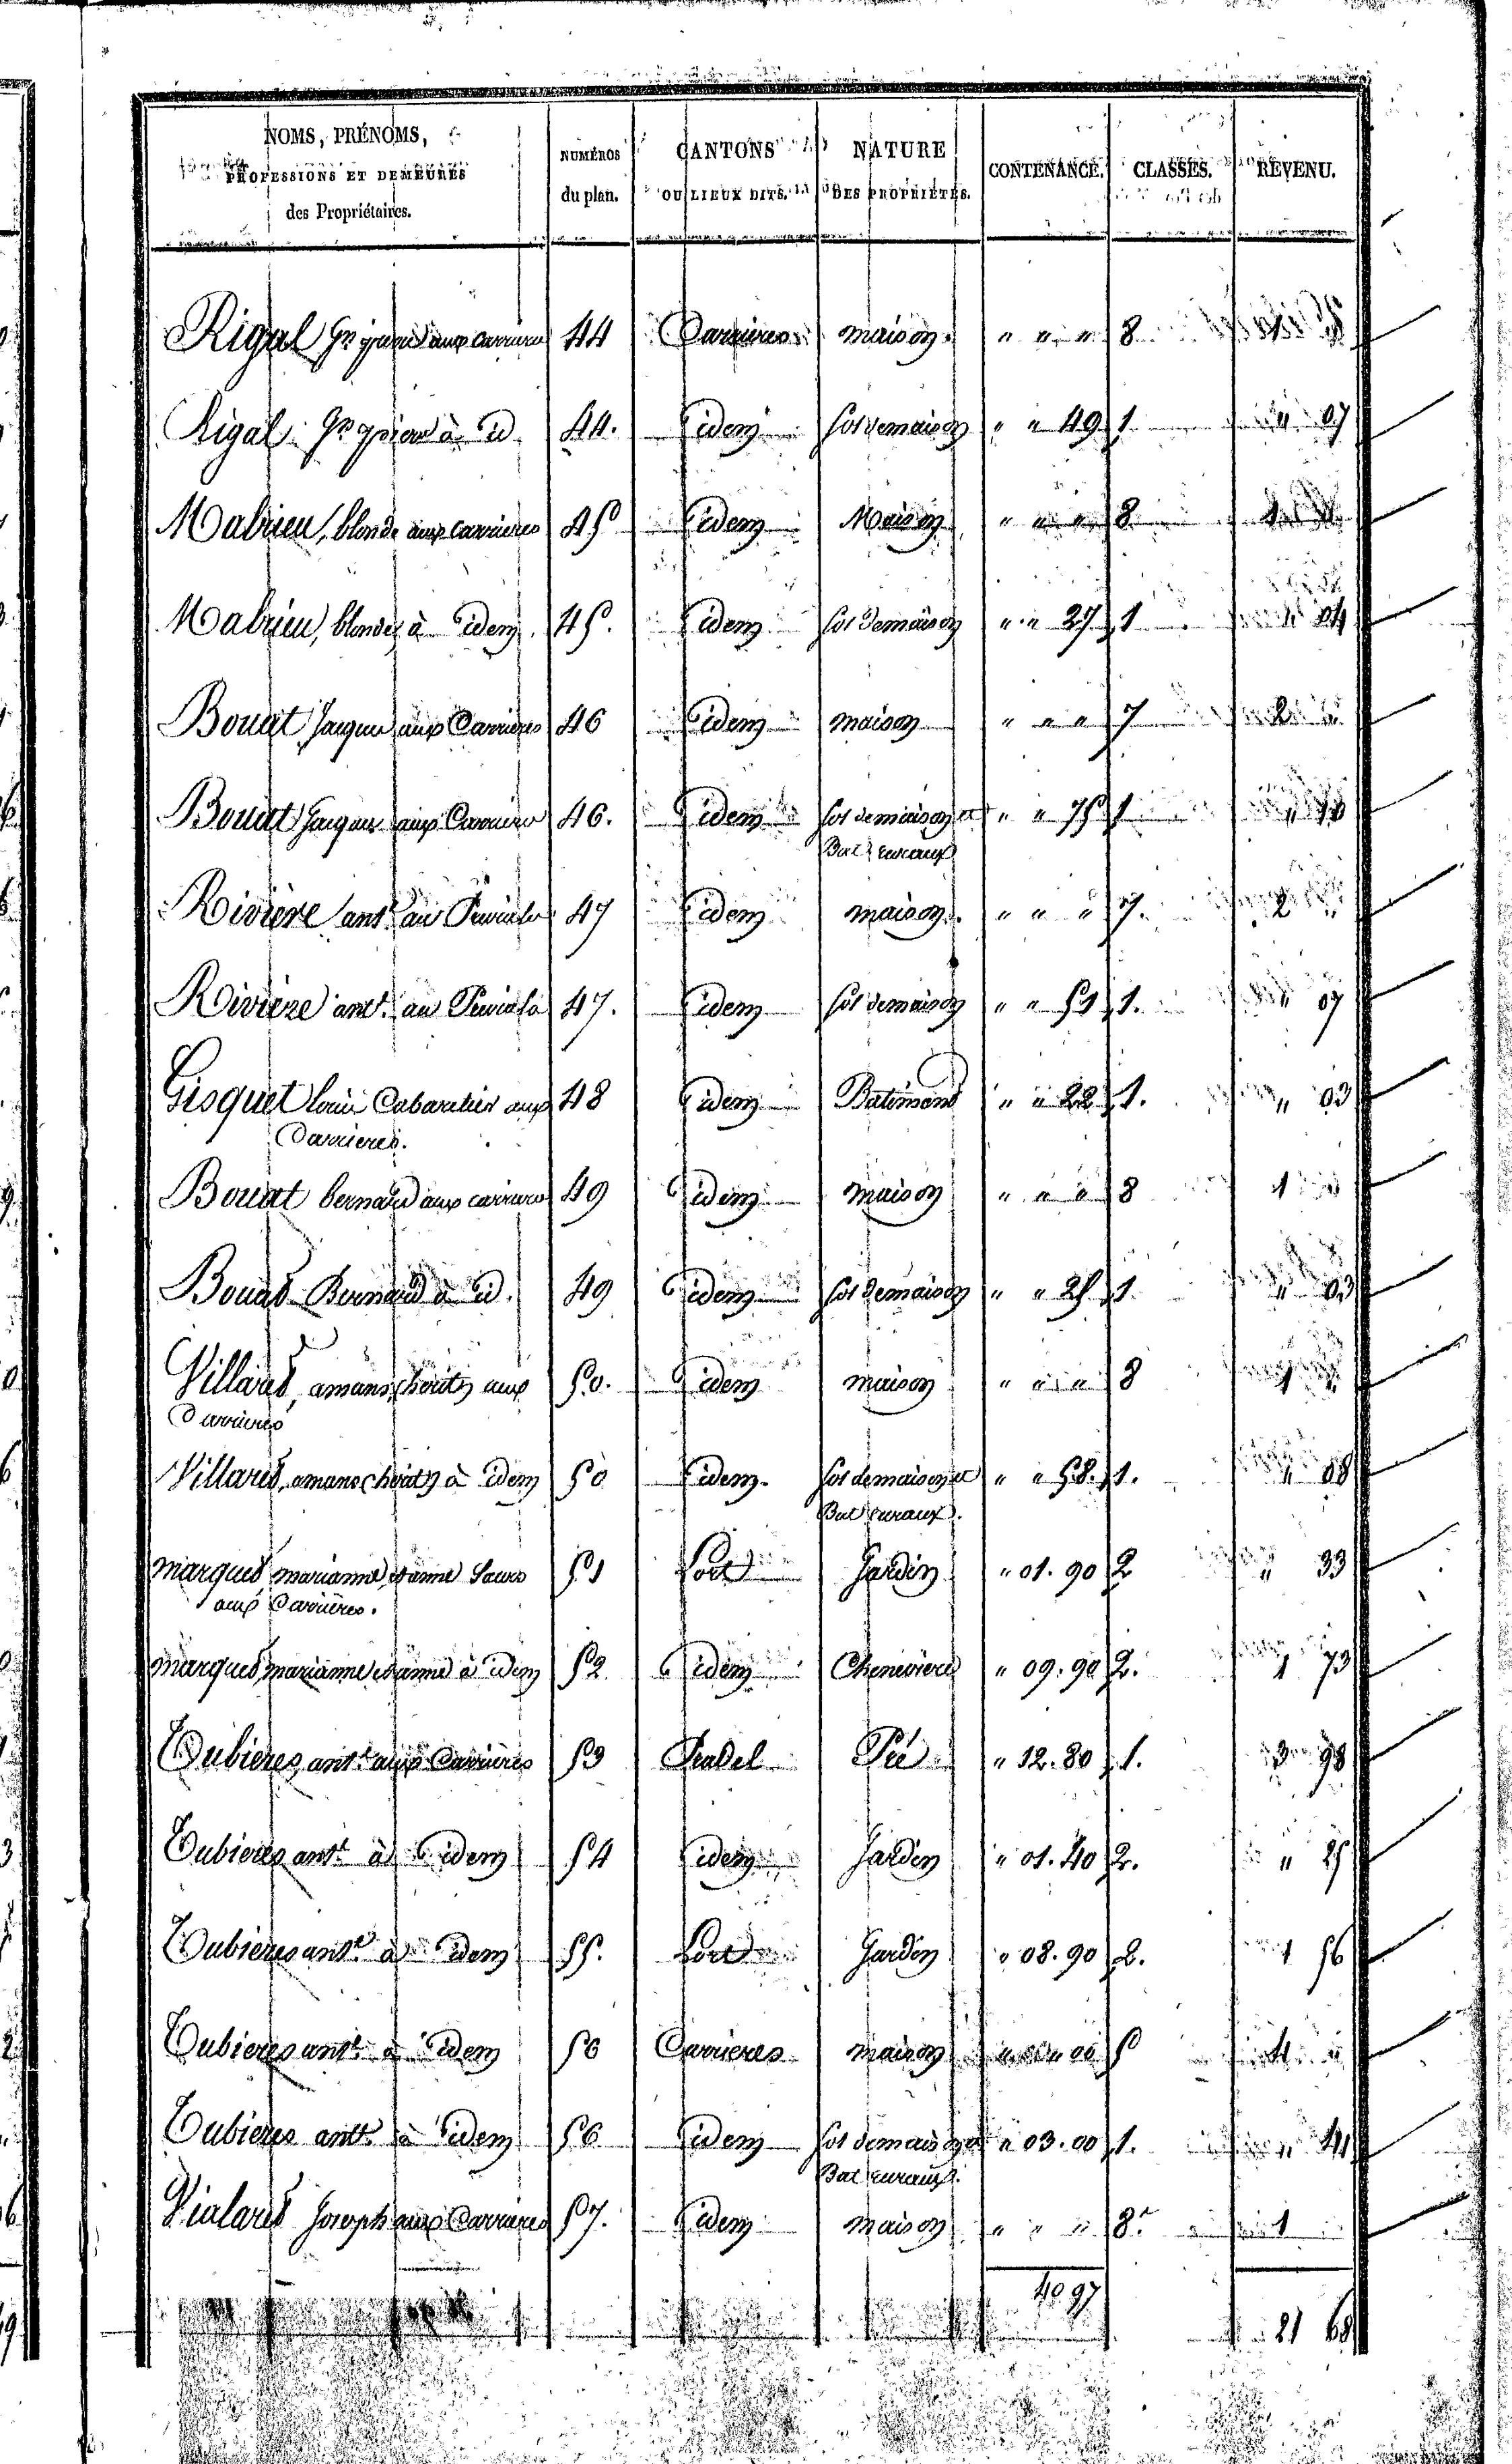 NOMS, PRÉNOMS,
PROFESSIONS ET DEMEURES
des Propriétaires.
NUMÉROS
du plan.
CANTONS
OU LIEUX DITS.
NATURE
DES PROPRIÉTÉS.
CONTENANCE.
CLASSES.
REVENU.
Rigal aux carrières 44 Carrières maison " " " 8
Rigal à id 44. idem sol de maison " " 49 1. " 07
Mabrieu, blonde aux carrieres 45 idem Maison " " " 8
Mabrieu, blonde à idem 45. idem sol de maison " " 27 1 " 04
Bouat Jacques aux Carrières 46 idem maison " " " 7 2 "
Bouat Jacques aux Carrières 46. idem sol de maison et " " 75 1 " 10
Bat ruraux
Rivière ant. au 47 idem maison " " " 7. 2 "
Rivière ant. au 47. idem sol de maison " " 51 1. " 07
Gisquet louis Cabaretier aux 48 idem Batiment " " 22 1. " 03
Carrieres.
Bouat bernard aux carrieres 49 idem maison " " " 8 1 "
Bouat Bernard à id. 49 idem sol de maison " " 25 1 " 03
Villaret, amans aux 50. idem maison " " " 8
Carrières
Villaret, amans à idem 50 idem. sol de maison et " " 58. 1. " 08
Bat ruraux.
marques marianne et anne Sœurs 51 Jardin " 01. 90 2 " 33
aux Carrières.
marques marianne et anne à idem 52 idem Cheneviere " 09. 90 2. 1 73
Tubieres, ant. aux Carrières 53 Pradel Pré " 12. 80 1. 3 98
Tubieres ant. à idem 54 idem Jardin " 01. 40 2. " 25
Tubieres ant. à idem 55. Jardin " 08. 90 2. 1 56
Tubieres ant. à idem 56 Carrieres maison 5 4 "
Tubieres ant. à idem 56 idem sol de maison et " 03. 00 1. " 41
Bat ruraux.
Vialaret Joseph aux Carrieres 57. idem maison " " " 8. 1
40 97
21 68